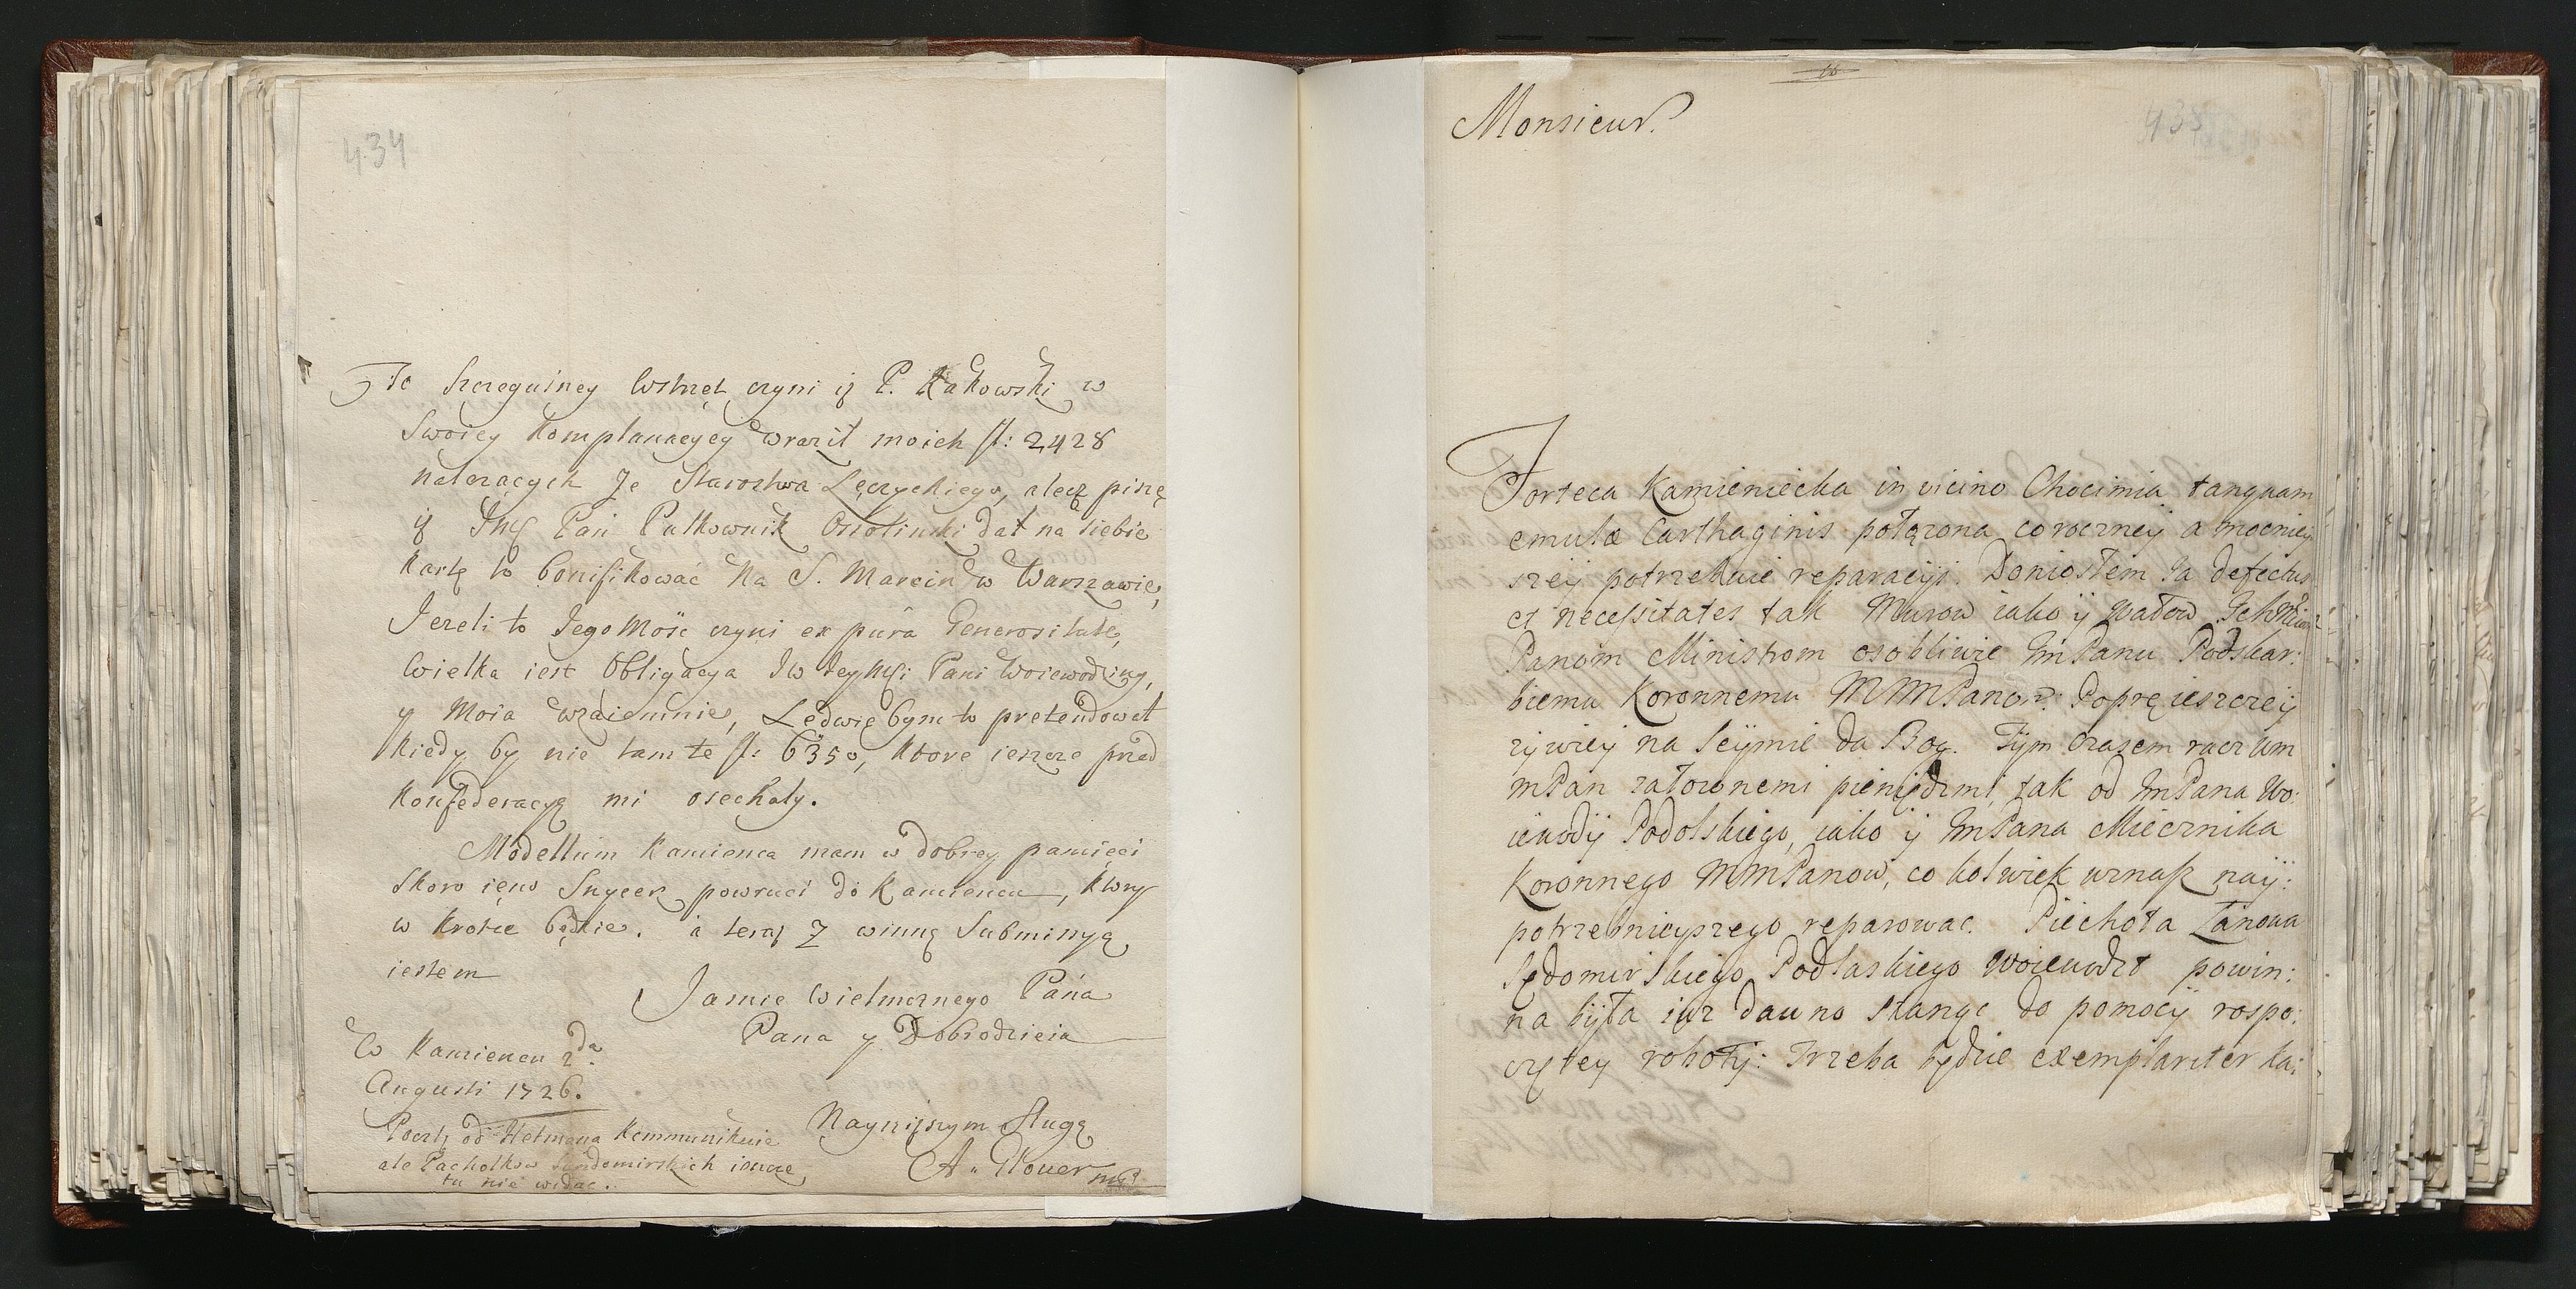 434
To szczegulney wstręt czyni iż P. Rakowski w
Swoiey Komplanacyey wraził moich fl: 2428
należących Ze Starostwa Łęczyckiego, alesz piszę
iż Pan Pułkownik Ossolinski dał na siebie
Kartę to bonifikować Na S. Marcin w Warszawie,
Jezeli to JegoMość czyni ex pura Generositate,
Wielka iest Obligacya Pani Woiewodziny,
y Moia wzaiemnie, Ledwie bym to pretendował
kiedy by nie tam te fl: 6350, ktore ieszcze przed
Konfederacyą mi osechały.
Modellum Kamienca mam w dobrey pamięci
skoro ieno Snycerz powruci do Kamienca, ktory
w krotce będzie. a teraz z winną Submissyą
iestem
Jasnie Wielmoznego Pana
Pana y Dobrodzieia
W Kamiencu 2da
Augusti 1726.
Nayniższym Sługą
Pocztę od Hetmana kommunikuie
ale Pachołkow Sendomirskich ieszcze
tu nie widac.
16
Monsieur.
435
Forteca Kamieniecka in vicino Chocimia tanquam
emulæ Carthaginis położona corocznęÿ a mocniey
szeÿ potrzebuie reparacÿi. Doniosłem Ja defectus
et necessitates tak Murow iako ÿ wałow
Panom Ministrom osobliwie ImPanu Podskar:
biemu Koronnemu Poprę ieszczeÿ
zÿwieÿ na Seÿmie da Bog. Tÿm czasem racz Um
mPan zatownemi pieniędzmi, tak od ImPana Wo:
iewodÿ Podolskiego, iako ÿ ImPana Miecznika
Koronnego MMPanow, co kolwiek uznasz naÿ:
potrzebnieyszego reparowac. Piechota Łanowa
Sędomirskiego, Podlaskiego Woiewodzt powin:
na bÿła iuz dawno stanąc do pomocÿ rospo:
czętey robotÿ: Trzeba będzie exemplariter ka: